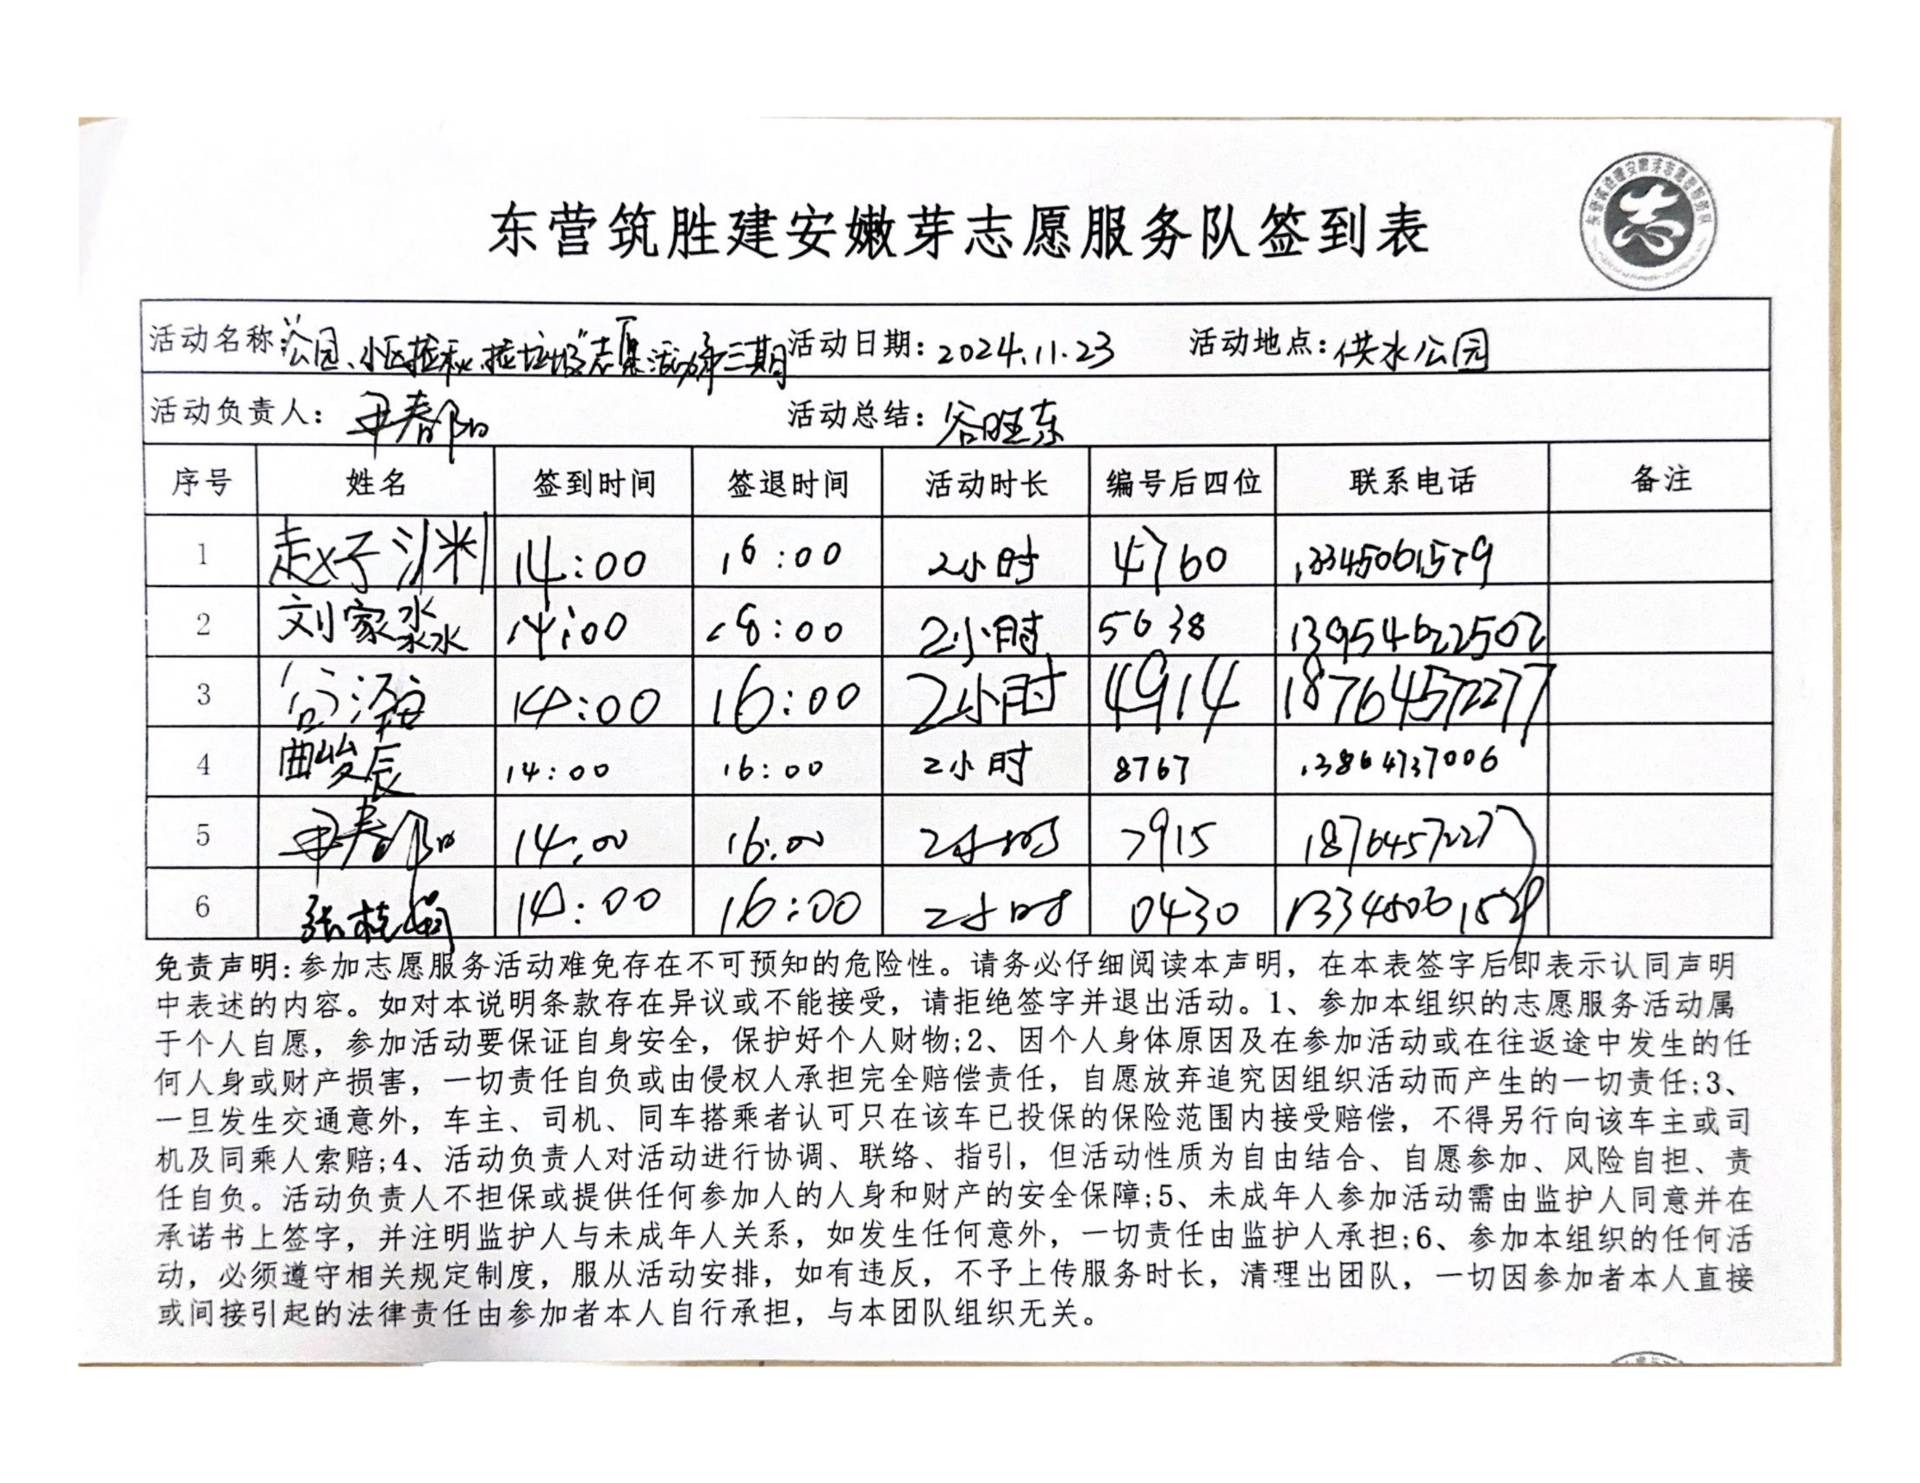 东营筑胜建安嫩芽志愿服务队签到表
志
活动名称:"公园、小区捡秋、捡垃圾"志愿活动第三期 活动日期: 2024.11.23 活动地点: 供水公园
活动负责人: 尹春阳 活动总结: 谷旺东
序号 姓名 签到时间 签退时间 活动时长 编号后四位 联系电话 备注
1 赵好 14:00 16:00 2小时 4760 13345061579
2 刘家淼 14:00 18:00 2小时 5638 13954622502
3 14:00 16:00 2小时 4914 18764572277
4 曲峻辰 14:00 16:00 2小时 8767 13864737006
5 尹春阳 14:00 16:00 2小时 7915 18764572277
6 张桂娟 14:00 16:00 2小时 0430 13345061579
免责声明:参加志愿服务活动难免存在不可预知的危险性。请务必仔细阅读本声明，在本表签字后即表示认同声明
中表述的内容。如对本说明条款存在异议或不能接受，请拒绝签字并退出活动。1、参加本组织的志愿服务活动属
于个人自愿，参加活动要保证自身安全，保护好个人财物;2、因个人身体原因及在参加活动或在往返途中发生的任
何人身或财产损害，一切责任自负或由侵权人承担完全赔偿责任，自愿放弃追究因组织活动而产生的一切责任;3、
一旦发生交通意外，车主、司机、同车搭乘者认可只在该车已投保的保险范围内接受赔偿，不得另行向该车主或司
机及同乘人索赔;4、活动负责人对活动进行协调、联络、指引，但活动性质为自由结合、自愿参加、风险自担、责
任自负。活动负责人不担保或提供任何参加人的人身和财产的安全保障;5、未成年人参加活动需由监护人同意并在
承诺书上签字，并注明监护人与未成年人关系，如发生任何意外，一切责任由监护人承担;6、参加本组织的任何活
动，必须遵守相关规定制度，服从活动安排，如有违反，不予上传服务时长，清理出团队，一切因参加者本人直接
或间接引起的法律责任由参加者本人自行承担，与本团队组织无关。